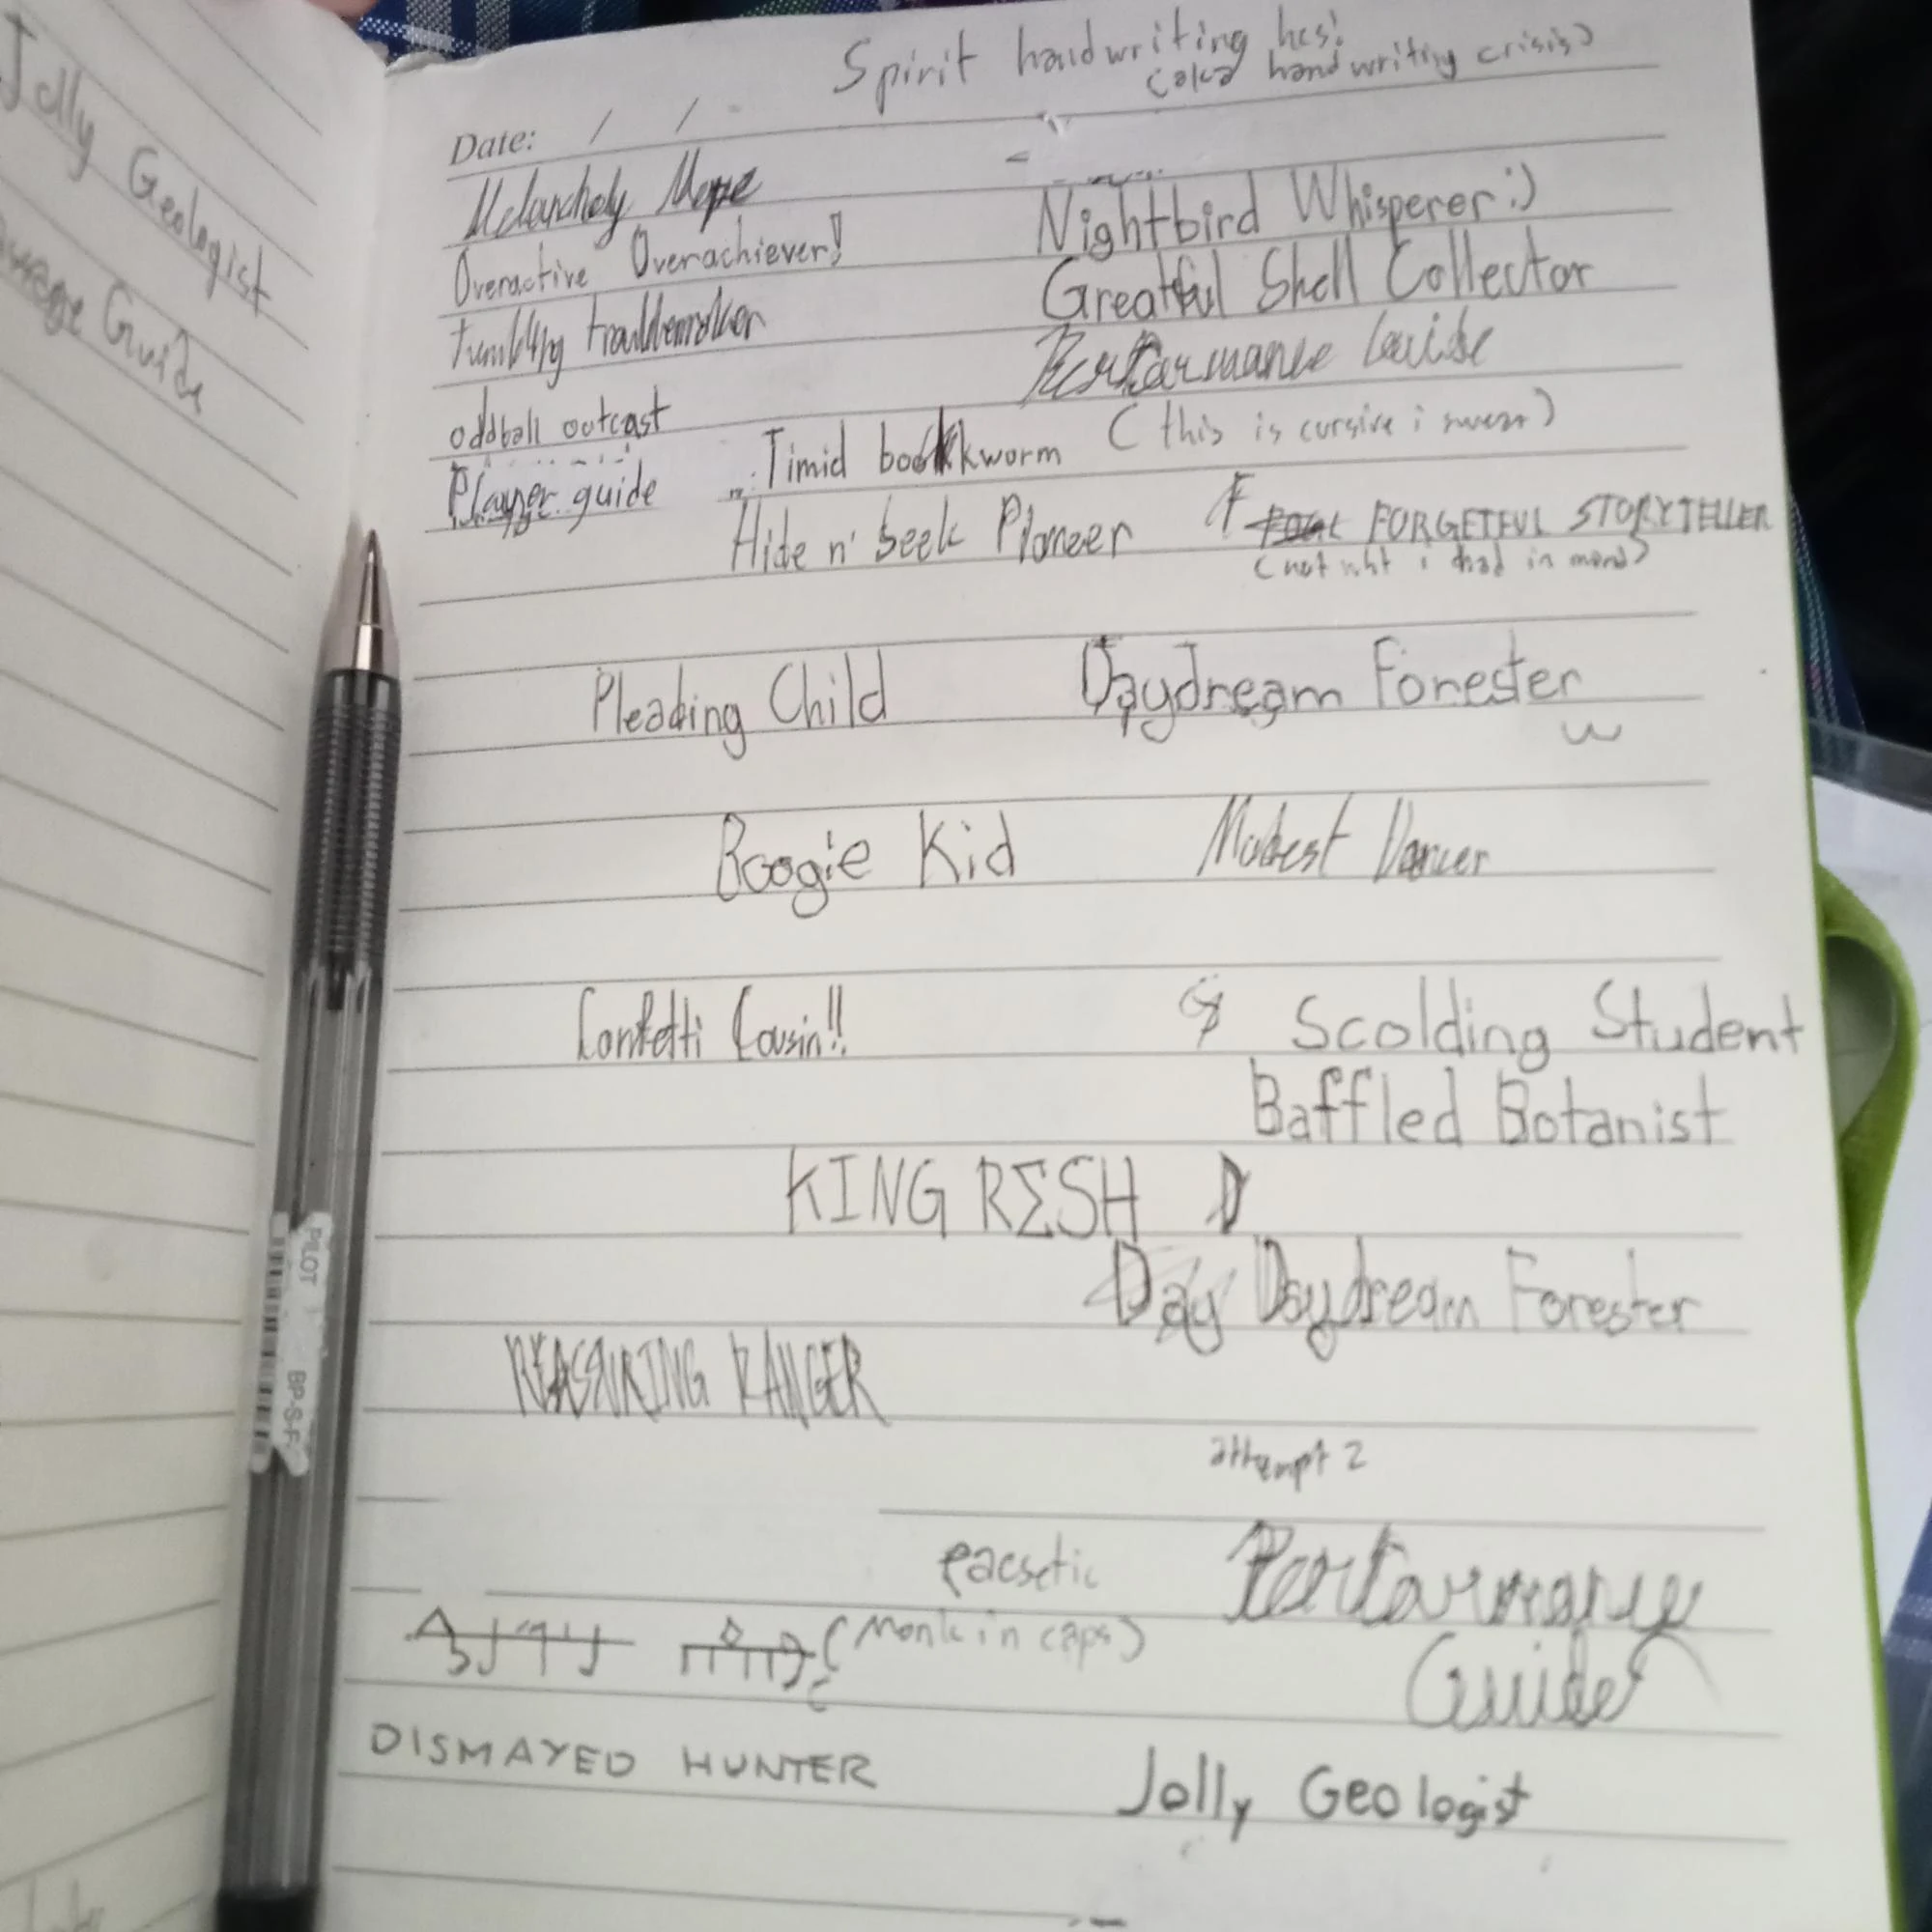 Jolly Geologist
Guide
Spirit handwriting hcs!
(aka handwriting crisis)
Date: / /
Melancholy Mope
Nightbird Whisperer :)
Overactive Overachiever!
Greatful Shell Collector
Tumbling troublemaker
Performance Guide
oddball outcast
(this is cursive i swear)
Timid bookworm
Player guide
Hide n' Seek Pioneer
F FORGETFUL STORYTELLER
(not wht i had in mind)
Pleading Child
Daydream Forester
Boogie Kid
Modest Dancer
Confetti Cousin!!
Scolding Student
Baffled Botanist
KING RΣSH D
Day Daydream Forester
REASSURING RANGER
attempt 2
eacsetic
Performance
(Monk in caps)
Guide
DISMAYED HUNTER
Jolly Geologist
PILOT BP-S-F